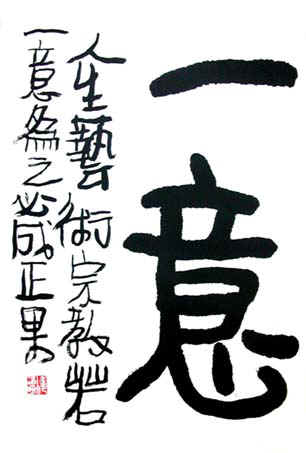 一意
人生藝術宗教若
一意為之必成正果